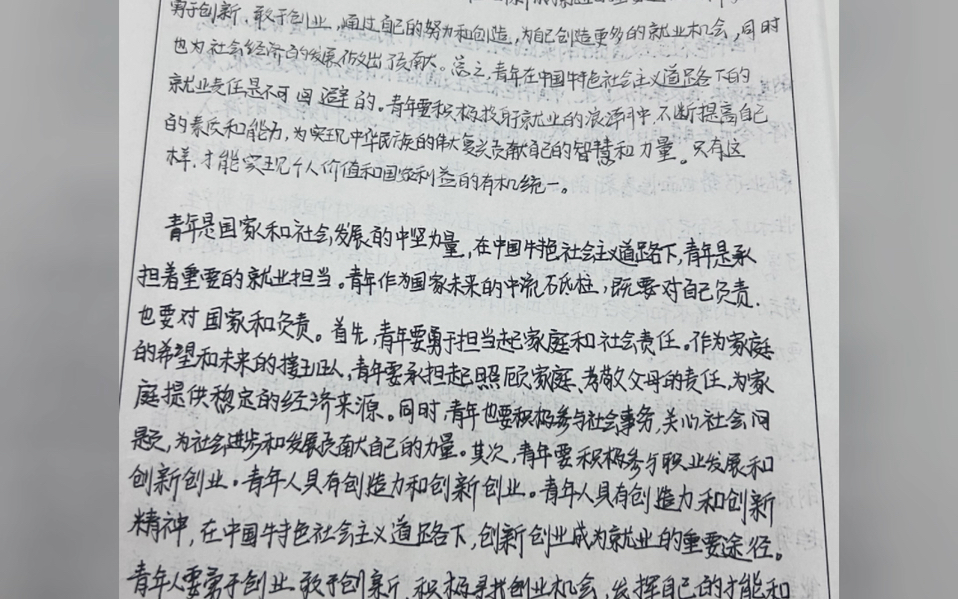 勇于创新，敢于创业，通过自己的努力和创造，为自己创造更多的就业机会，同时
也为社会经济的发展做出了贡献。总之，青年在中国特色社会主义道路下的
就业责任是不可回避的。青年要积极投身于就业的浪潮中，不断提高自己
的素质和能力，为实现中华民族的伟大复兴贡献自己的智慧和力量。只有这
样，才能实现个人价值和国家利益的有机统一。
青年是国家和社会发展的中坚力量，在中国特色社会主义道路下，青年是承
担着重要的就业担当。青年作为国家未来的中流砥柱，既要对自己负责，
也要对国家和负责。首先，青年要勇于担当起家庭和社会责任。作为家庭
的希望和未来的接班人，青年要承担起照顾家庭、孝敬父母的责任，为家
庭提供稳定的经济来源。同时，青年也要积极参与社会事务，关心社会问
题，为社会进步和发展贡献自己的力量。其次，青年要积极参与职业发展和
创新创业。青年人具有创造力和创新创业。青年人具有创造力和创新
精神，在中国特色社会主义道路下，创新创业成为就业的重要途径。
青年人要勇于创业、敢于创新，积极寻找创业机会，发挥自己的才能和